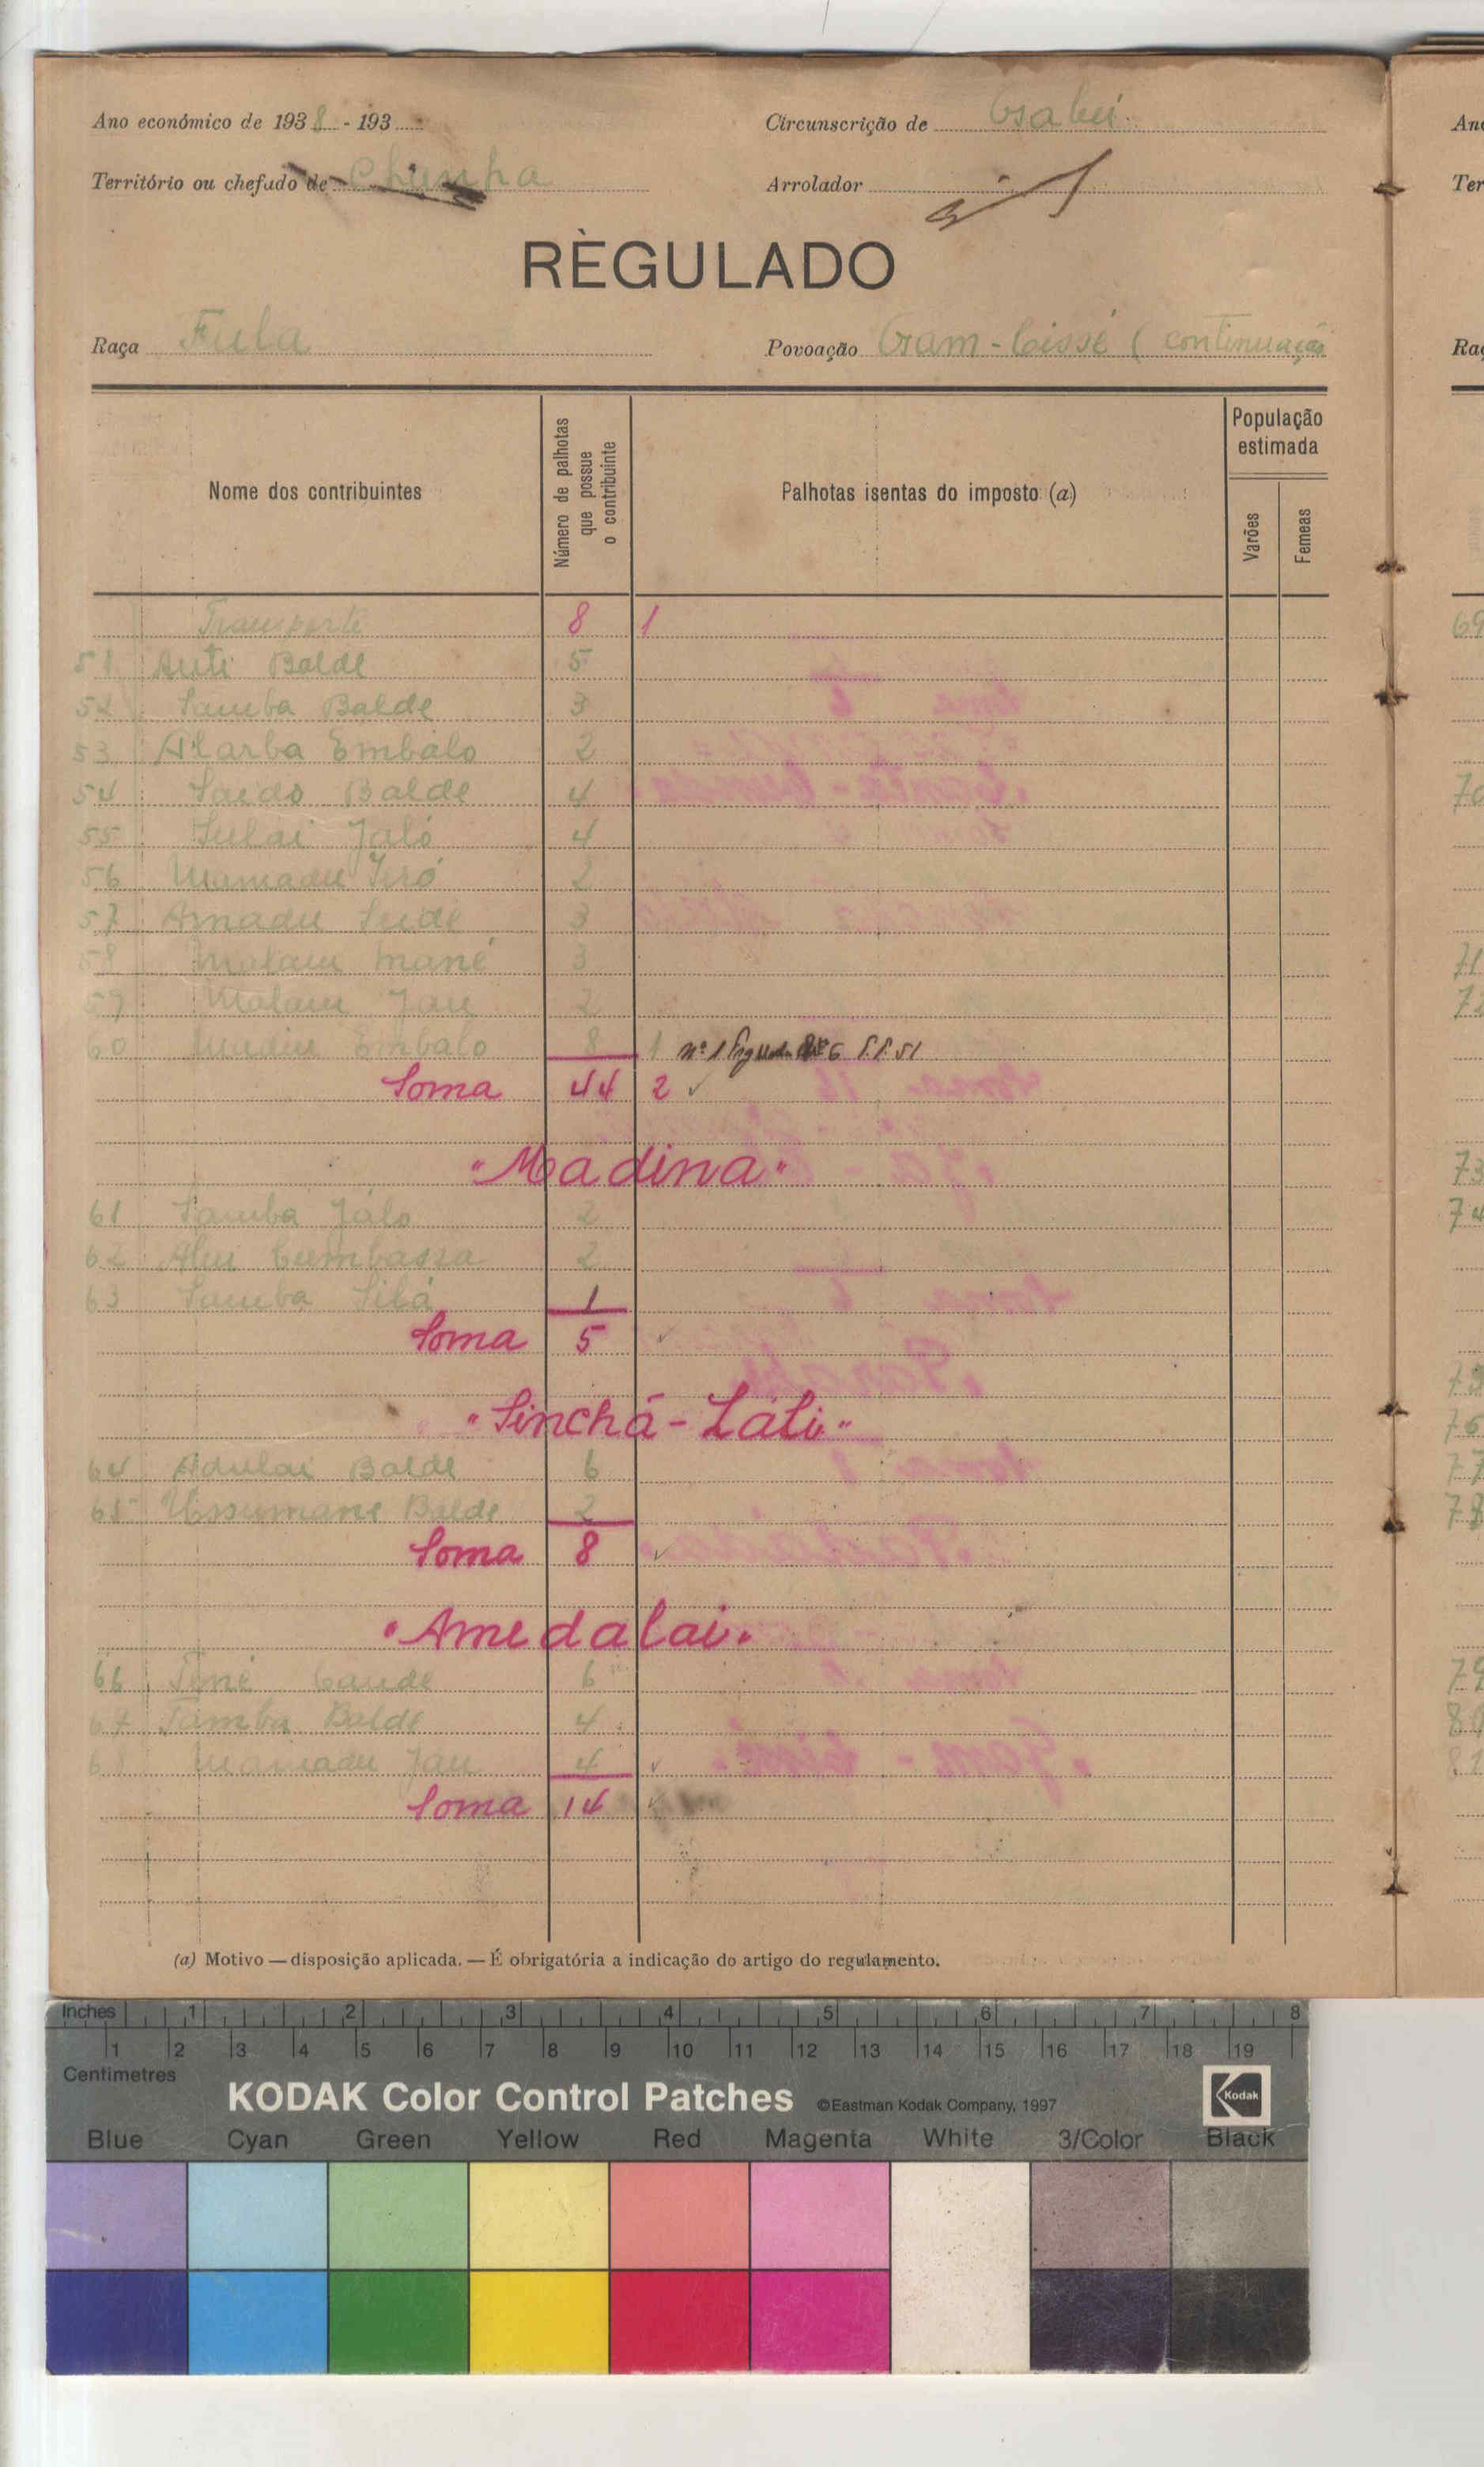 Ano económico de 1938 - 193
Circunscrição de Gabú
Território ou chefado de Chanha
Arrolador
RÈGULADO
Raça Fula
Povoação Gam-Cissé (continuação
Nome dos contribuintes
Número de palhotas que possue o contribuinte
Palhotas isentas do imposto (a)
População estimada
Varões
Femeas
Transporte 8 1
51 Auti Balde 5
52 Samba Balde 3
53 Alarba Embalo 2
54 Saido Balde 4
55 Sulai Jaló 4
56 Mamadu Jiró 2
57 Amadu Seide 3
58 Malam Mané 3
59 Malam Jau 2
60 Embalo 8 1 nº 1
Soma 44 2 ✓
"Madina"
61 Samba Jaló 2
62 Aliu Cumbassa 2
63 Samba Silá 1
Soma 5 ✓
"Sinchã-Láli"
64 Adulai Balde 6
65 Ussumane Balde 2
Soma 8 ✓
"Amedalai"
66 Tené Cande 6
67 Samba Balde 4
68 Mamadu Jau 4 ✓
Soma 14 ✓
(a) Motivo — disposição aplicada. — É obrigatória a indicação do artigo do regulamento.
69
70
71
72
73
74
76
77
78
79
80
Inches 1 2 3 4 5 6 7 8
1 2 3 4 5 6 7 8 9 10 11 12 13 14 15 16 17 18 19
Centimetres
KODAK Color Control Patches ©Eastman Kodak Company, 1997 Kodak
Blue Cyan Green Yellow Red Magenta White 3/Color Black